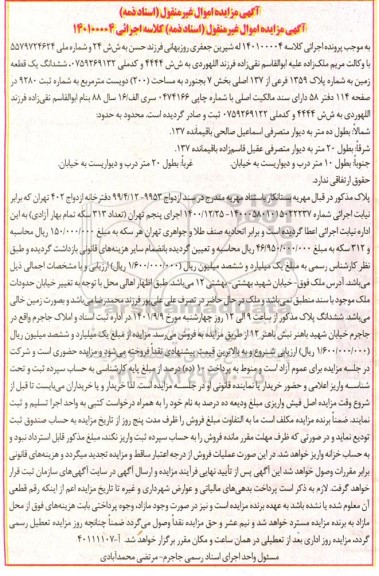 آگهی مزایده اموال غیر منقول (اسناد ذمه)
آگهی مزایده اموال غیر منقول (اسناد ذمه) کلاسه اجرائی ۱۴۰۱۰۰۰۰۴
به موجب پرونده اجرائی کلاسه ۱۴۰۱۰۰۰۰۴ له شیرین جعفری روزبهانی فرزند حسن به ش ش ۲۴ و شماره ملی ۵۵۷۹۷۲۴۶۲۴
با وکالت مریم ملک‌زاده علیه ابوالقاسم نقی‌زاده فرزند اللهوردی به ش ش ۴۴۴۴ و کدملی ۰۷۵۹۲۶۹۱۳۲، ششدانگ یک قطعه
زمین به شماره پلاک ۱۳۵۹ فرعی از ۱۳۷ اصلی بخش ۷ بجنورد به مساحت (۲۰۰) دویست مترمربع به شماره ثبت ۹۲۸۰ در
صفحه ۱۱۴ دفتر ۵۸ دارای سند مالکیت اصلی با شماره چاپی ۰۴۷۴۱۶۶ سری الف/۱۶ سال ۸۸ بنام ابوالقاسم نقی‌زاده فرزند
اللهوردی به ش ش ۴۴۴۴ و کدملی ۰۷۵۹۲۶۹۱۲۲ ثبت و صادر گردیده است. محدود به حدود:
شمالاً: بطول ده متر به دیوار متصرفی اسماعیل صالحی باقیمانده ۱۳۷.
شرقاً: بطول ۲۰ متر به دیوار متصرفی عقیل قاسم‌زاده باقیمانده ۱۳۷.
جنوباً: بطول ۱۰ متر درب و دیواریست به خیابان. غرباً: بطول ۲۰ متر درب و دیواریست به خیابان.
حقوق ارتفاقی ندارد.
پلاک مذکور در قبال مهریه بستانکار باستناد مهریه مندرج در سند ازدواج ۹۹۵۳-۹۹/۴/۱۲ دفترخانه ازدواج ۴۰۲ تهران که برابر
نیابت اجرائی شماره ۱۴۰۰۰۵۸۰۱۱۵۰۲۲۲۳۷-۱۴۰۰/۱۲/۲۵ اجرای پنجم تهران (تعداد ۳۱۳ سکه تمام بهار آزادی) به این
اداره نیابت اجرائی اعطا گردیده است و برابر اتحادیه صنف طلا و جواهری تهران هر سکه به مبلغ ۱۵۰/۰۰۰/۰۰۰ ریال محاسبه
و ۳۱۳ سکه به مبلغ ۴۶/۹۵۰/۰۰۰/۰۰۰ ریال محاسبه و تعیین گردیده بانضمام سایر هزینه‌های قانونی بازداشت گردیده و طبق
نظر کارشناس رسمی به مبلغ یک میلیارد و ششصد میلیون ریال (۱/۶۰۰/۰۰۰/۰۰۰ ریال) ارزیابی و با مشخصات اجمالی ذیل
می‌باشد. آدرس ملک فوق - خیابان شهید بهشتی- بهشتی ۱۲ می‌باشد. طبق اظهار اهالی محل با توجه به تغییر خیابان حدودات
ملک موجود با سند منطبق نمی‌باشد و ملک در حال حاضر در تصرف علی علی‌پور فرزند محمدرضا می‌باشد و بصورت زمین خالی
می‌باشد. ششدانگ پلاک مذکور از ساعت ۹ الی ۱۲ روز چهارشنبه مورخ ۱۴۰۱/۹/۹ در اداره ثبت اسناد و املاک جاجرم واقع در
جاجرم خیابان شهید باهنر نبش باهنر ۱۲ از طریق مزایده به فروش می‌رسد. مزایده از مبلغ یک میلیارد و ششصد میلیون ریال
(۱/۶۰۰/۰۰۰/۰۰۰ ریال) ارزیابی شروع و به بالاترین قیمت پیشنهادی نقداً فروخته می‌شود و مزایده حضوری است و شرکت
در جلسه مزایده برای عموم آزاد است و منوط به پرداخت ۱۰ (ده) درصد از مبلغ پایه کارشناسی به حساب سپرده ثبت و تحت
شناسه واریز اعلامی و حضور خریدار یا نماینده قانونی او در جلسه مزایده است. لذا خریدار و یا خریداران می‌بایست تا قبل از
شروع وقت مزایده اصل فیش واریزی مبلغ ودیعه ده درصد به نام خود را به همراه درخواست کتبی به واحد اجرا تسلیم و ثبت
نمایند. ضمناً برنده مزایده مکلف است ما به التفاوت مبلغ فروش را ظرف مدت پنج روز از تاریخ مزایده به حساب صندوق ثبت
تودیع نماید و در صورتی که ظرف مهلت مقرر مانده فروش را به حساب سپرده ثبت واریز نکند، مبلغ مذکور قابل استرداد نبود و
به حساب خزانه واریز خواهد شد. در این صورت عملیات فروش از درجه اعتبار ساقط و مزایده تجدید میگردد و هزینه‌های قانونی
برابر مقررات وصول خواهد شد این آگهی پس از تأیید نهایی فرآیند مزایده و ارسال آگهی در سایت آگهی‌های سازمان ثبت قرار
خواهد گرفت. لازم به ذکر است پرداخت بدهی‌های مالیاتی و عوارض شهرداری و غیره تا تاریخ مزایده اعم از اینکه رقم قطعی
آن معلوم شده یا نشده باشد به عهده برنده مزایده است و نیز در صورت وجود مازاد، وجوه پرداختی بابت هزینه‌های فوق از محل
مازاد به برنده مزایده مسترد خواهد شد و نیم عشر و حق مزایده نقداً وصول می‌گردد ضمناً چنانچه روز مزایده تعطیل رسمی
گردد، مزایده روز اداری بعد از تعطیلی در همان ساعت و مکان مقرر برگزار خواهد شد. آ-۴۰۱۱۱۱۰۷
مسئول واحد اجرای اسناد رسمی جاجرم- مرتضی محمدآبادی